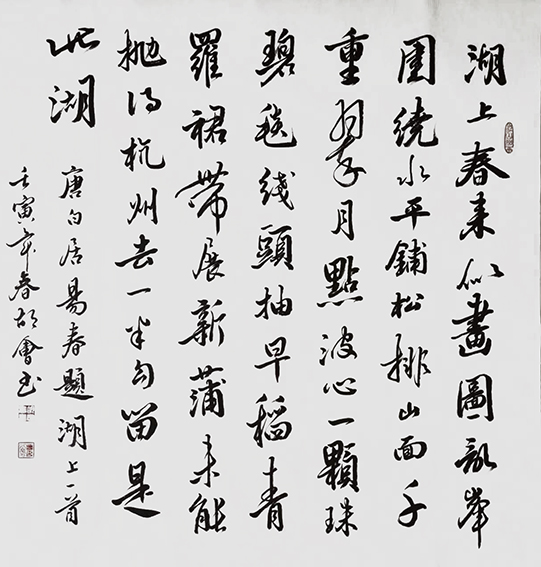 湖上春来似畫圖亂峯
圍繞水平鋪松排山面千
重翠月點波心一顆珠
碧毯线頭抽早稻青
羅裙帶展新蒲未能
抛得杭州去一半勾留是
此湖
唐白居易春題湖上一首
壬寅年春胡會书